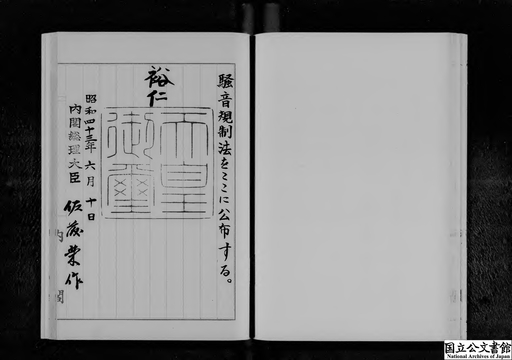 騒音規制法をここに公布する。
裕仁
天皇御璽
昭和四十三年六月十日
内閣総理大臣 佐藤榮作
内閣
国立公文書館
National Archives of Japan